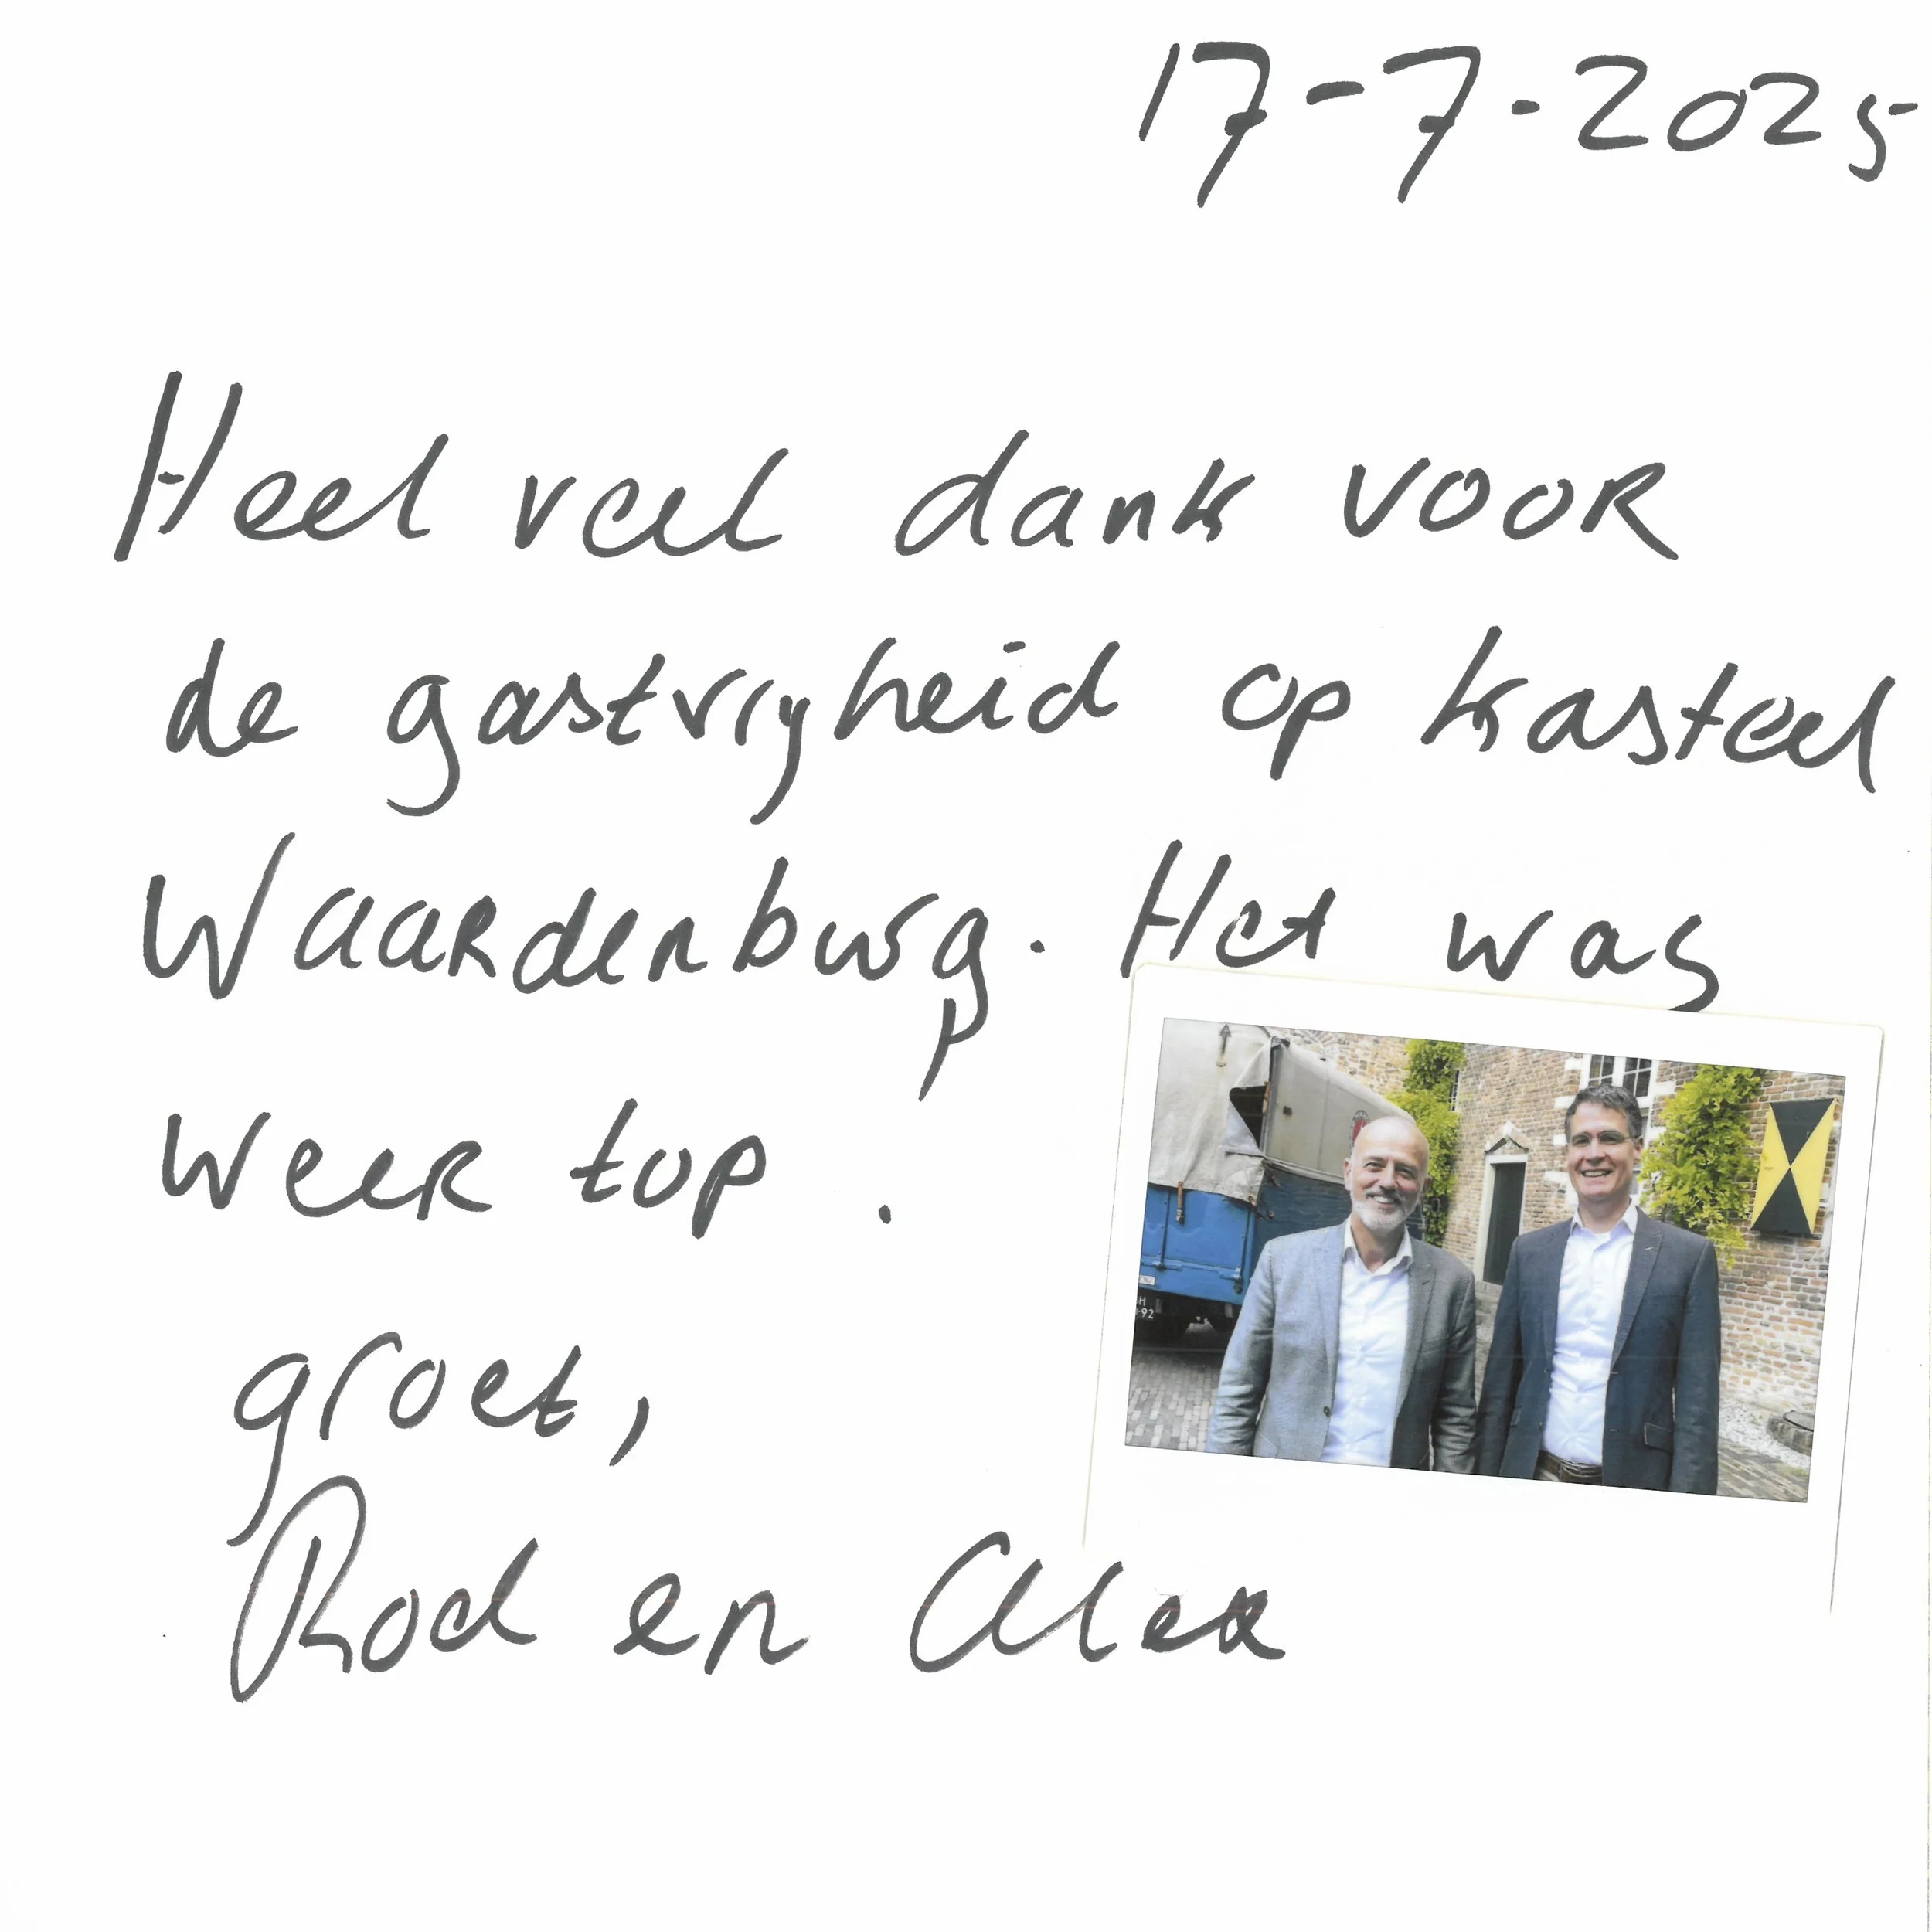 17-7-2025
Heel veel dank voor
de gastvrijheid op kasteel
Waardenburg. Het was
weer top.
groet,
Rod en Alex